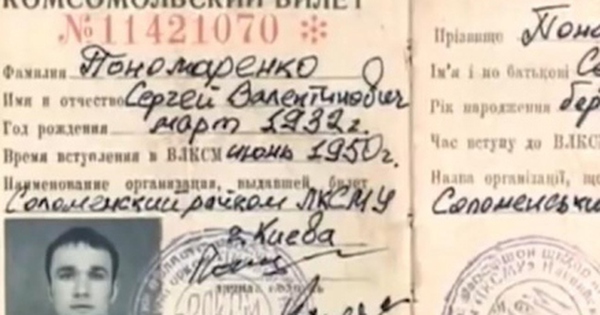 КОМСОМОЛЬСКИЙ БИЛЕТ
№ 11421070
Фамилия Пономаренко
Имя и отчество Сергей Валентинович
Год рождения март 1932 г.
Время вступления в ВЛКСМ июнь 1950 г.
Наименование организация, выдавшей билет
Соломенский райком ЛКСМУ
г. Киева
Прізвище
Ім'я і по батькові
Рік народження
Час вступу до
Назва організації,